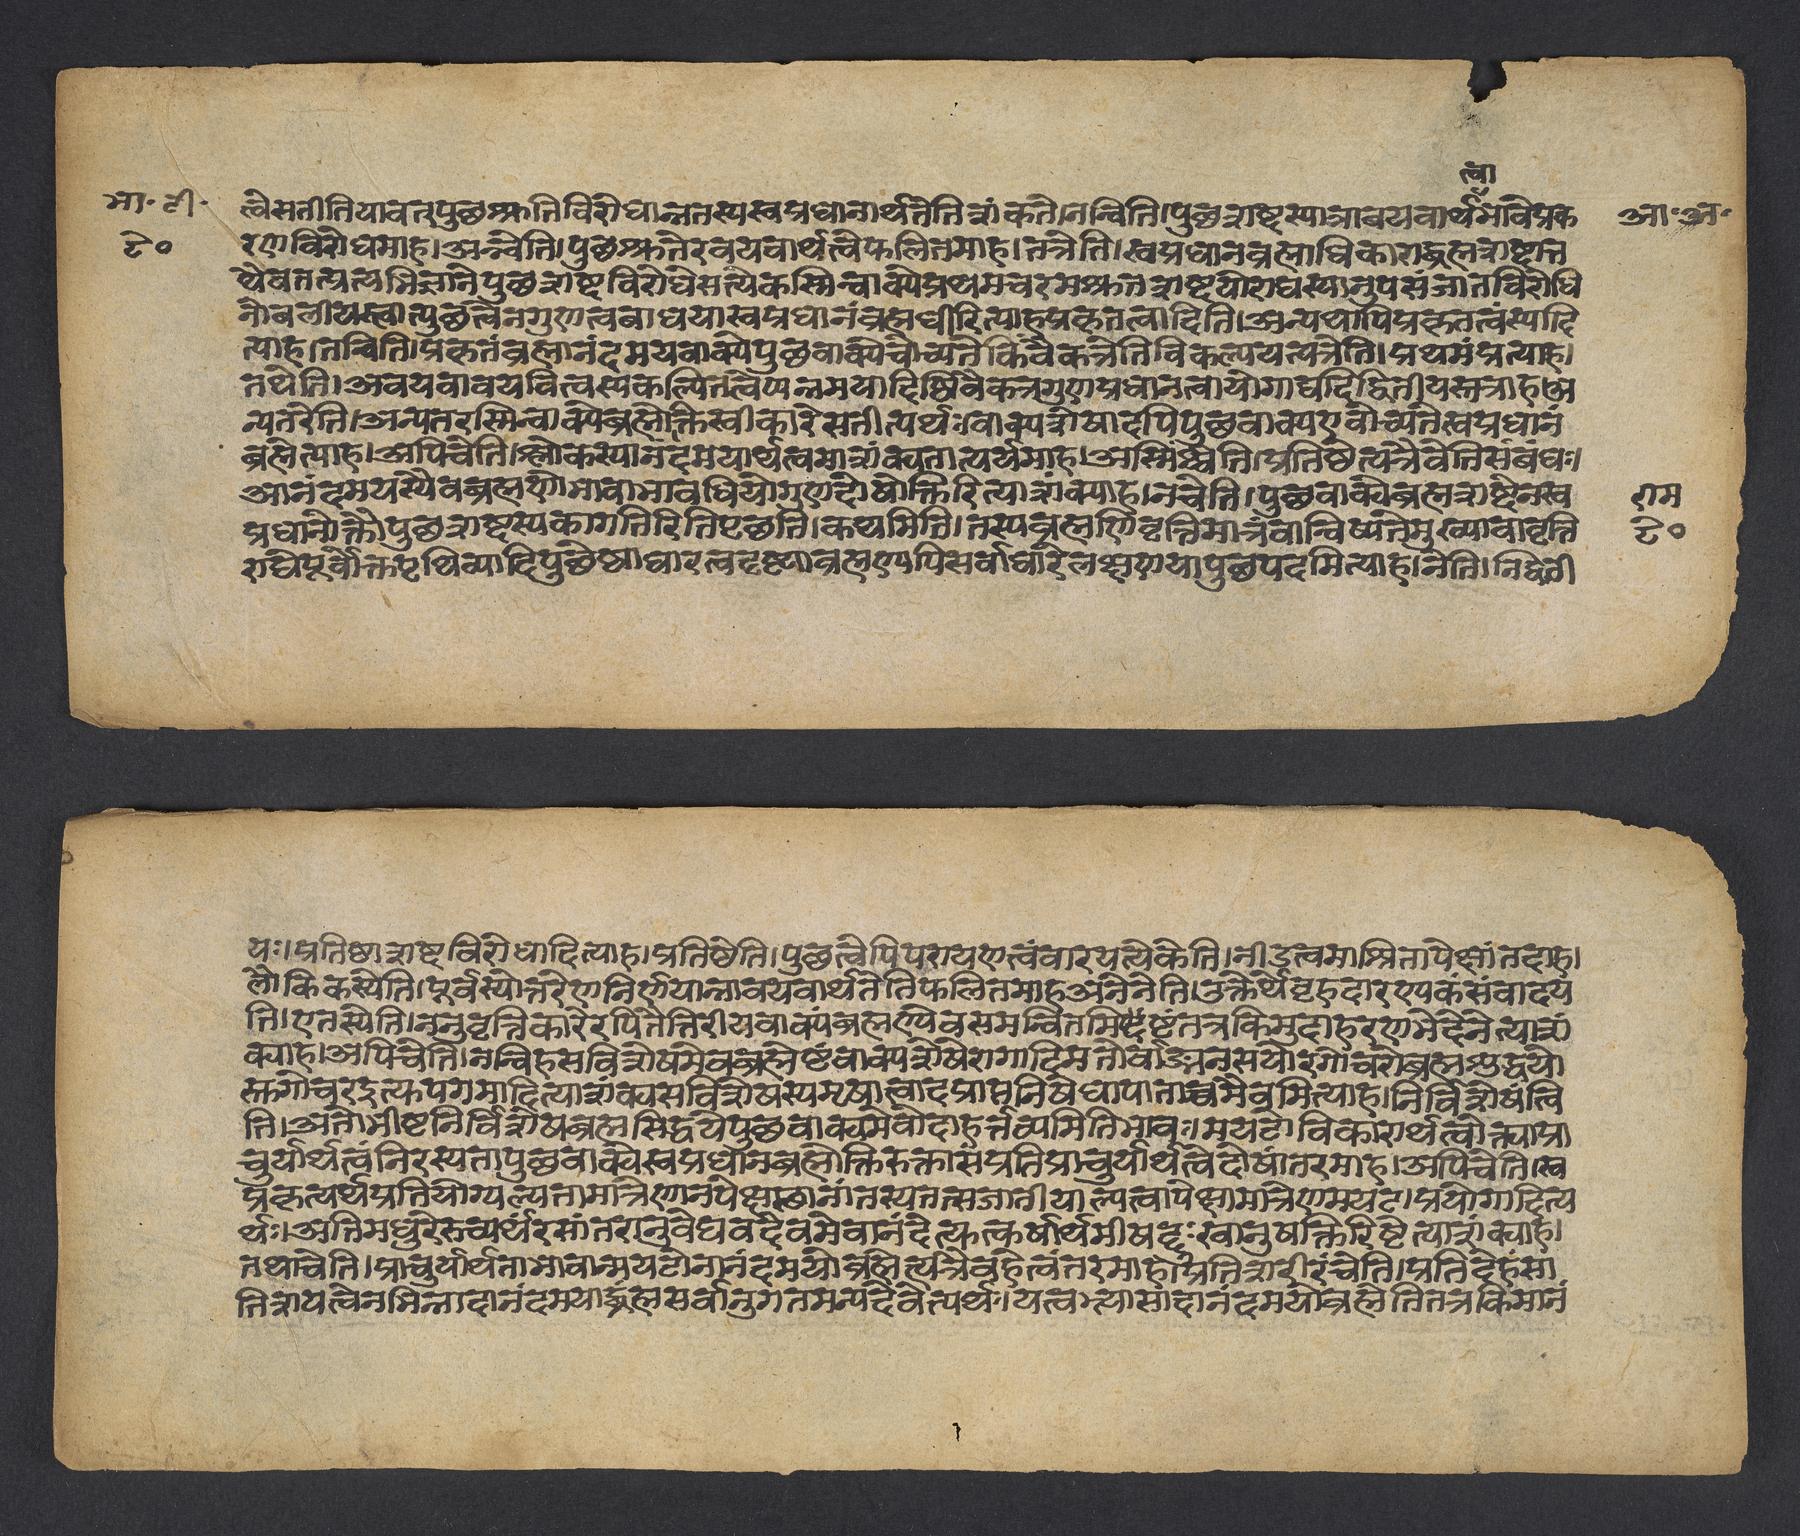 त्वा
भा॰ टी॰
त्वेसतीतियावत् पुछश्रुतिविरोधान्नतस्यस्वप्रधानार्थतेतिशंकते।नन्विति।पुछशब्दस्यात्रावयवार्थमेवेप्रक
आ॰ अ॰
९०
रणविरोधमाह।अन्वेति।पुछश्रुतेरवयवार्थत्वेफलितमाह।तत्रेति।स्वप्रधानब्रह्माधिकाराद्ब्रह्मशब्दात्त
थैवतत्प्रत्यभिज्ञानेपुछशब्दविरोधेसत्येकस्मिन्वाक्येप्रथमचरमश्रुतशब्दयोराद्यस्यानुपसंजातविरोधि
नोबलीयस्त्वात्पुछत्वेनगुणत्वबाधयास्वप्रधानंब्रह्मधीरित्याहप्रकृतत्वादिति।अन्यथापिप्रकृतत्वंस्यादि
त्याह।नन्विति।प्रकृतंब्रह्मानंदमयवाक्येपुछवाक्येचोच्यतेकिंवैकत्रेतिविकल्पयत्यत्रेति।प्रथमंप्रत्याह।
तथेति।अवयवावयवित्वस्यकल्पितत्वेप्यन्नमयादिष्विवैकत्रगुणप्रधानत्वायोगाद्यदिद्वितीयस्तत्राह।अ
न्यतरेति।अन्यतरस्मिन्वाक्येब्रह्मोक्तिस्वीकारेसतीत्यर्थः।वाक्यशेषादपिपुछवाक्यएवोच्यतेस्वप्रधानं
ब्रह्मेत्याह।अपिचेति।श्लोकस्यानंदमयार्थत्वमाशंक्यतात्पर्यमाह।अस्मिंश्चेति।प्रतिष्ठेत्यत्रैवेतिसंबंधः।
आनंदमयस्यैवब्रह्मणोभावाभावधियोगुणदोषोक्तिरित्याशंक्याह।नचेति।पुछवाक्येब्रह्मशब्देनस्व
राम
प्रधानोक्तौपुछशब्दस्यकागतिरितिपृछति।कथमिति।तस्यब्रह्मणिवृत्तिमात्रंवान्विष्यतेमुख्यावावृत्ति
९०
राद्येपूर्वोक्तपृथिव्यादिपुछेष्वाधारत्वदृष्ट्याब्रह्मण्यपिसर्वाधारेलक्षणयापुछपदमित्याह।नेति।नद्विती
यः।प्रतिष्ठाशब्दविरोधादित्याह।प्रतिष्ठेति।पुछत्वेपिपरायणत्वंवारयत्येकेति।नीडत्वमाश्रितापेक्षांतदाह।
लौकिकस्येति।पूर्वस्योत्तरेणनिर्णयान्नावयवार्थतेतिफलितमाहअनेनेति।उक्तेर्थेबृहदारण्यकसंवादय
ति।एतस्येति।ननुवृत्तिकारैरपितैत्तिरीयवाक्यंब्रह्मण्येवसमन्वितमिष्टंतत्रकिमुदाहरणभेदेनेत्याशं
क्याह।अपिचेति।नन्विहसविशेषमेवब्रह्मेष्टंवाक्यशेषेरागादिमतोर्वाङ्मनसयोरगोचरोब्रह्मशुद्धयो
स्तगोचरइत्यपगमादित्याशंक्यसविशेषस्यमृषात्वादप्राप्तनिषेधापाताच्चमैवमित्याह।निर्विशेषंत्वि
ति।अतोभीष्टनिर्विशेषब्रह्मसिद्धयेपुछवाक्यमेवोदाहर्त्तव्यमितिभावः।मयटोविकारार्थत्वोक्त्याप्रा
चुर्यार्थत्वंनिरस्यतापुछवाक्येस्वप्रधानब्रह्मोक्तिरुक्तासंप्रतिप्राचुर्यार्थत्वेदोषांतरमाह।अपिचेति।स्व
प्रकृत्यर्थप्रतियोग्यल्पतामात्रेणानपेक्षाछानांतस्यतत्सजातीयाल्पत्वापेक्षामात्रेणमयटःप्रयोगादित्य
र्थः।अतिमधुरेस्तव्यर्थरसांतरानुवेधवदेवमेवानंदेत्यत्कर्षार्थमीषद्दुःखानुषक्तिरिष्टेत्याशंक्याह।
तथाचेति।प्राचुर्यार्थताभावान्मयटोनानंदमयोब्रह्मेत्यत्रैवहेत्वंतरमाह।प्रतिशरीरंचेति।प्रतिदेहंसा
तिशयत्वेनभिन्नादानंदमयाद्ब्रह्मसर्वानुगतमन्यदेवेत्यर्थः।यत्वभ्यासादानंदमयोब्रह्मेतितत्रकिमानं